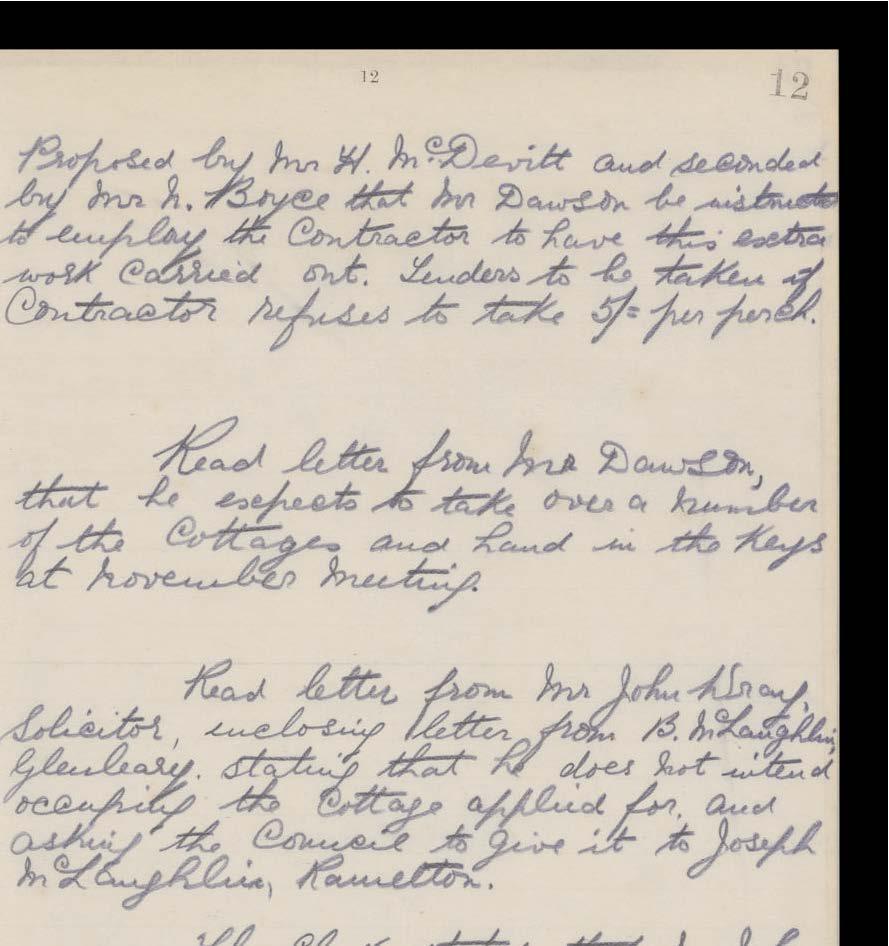 12
12
Proposed by Mr H. McDevitt and seconded
by Mr N. Boyce that Mr Dawson be instructed
to employ the Contractor to have this extra
work carried out. Tenders to be taken if
Contractor refuses to take 5/= per perch.
Read letter from Mr Dawson,
that he expects to take over a number
of the Cottages and hand in the Keys
at November Meeting.
Read letter from Mr John Wray,
Solicitor, enclosing letter from B. McLaughlin,
Glenleary. stating that he does not intend
occupying the Cottage applied for, and
asking the Council to give it to Joseph
McLaughlin, Ramelton.